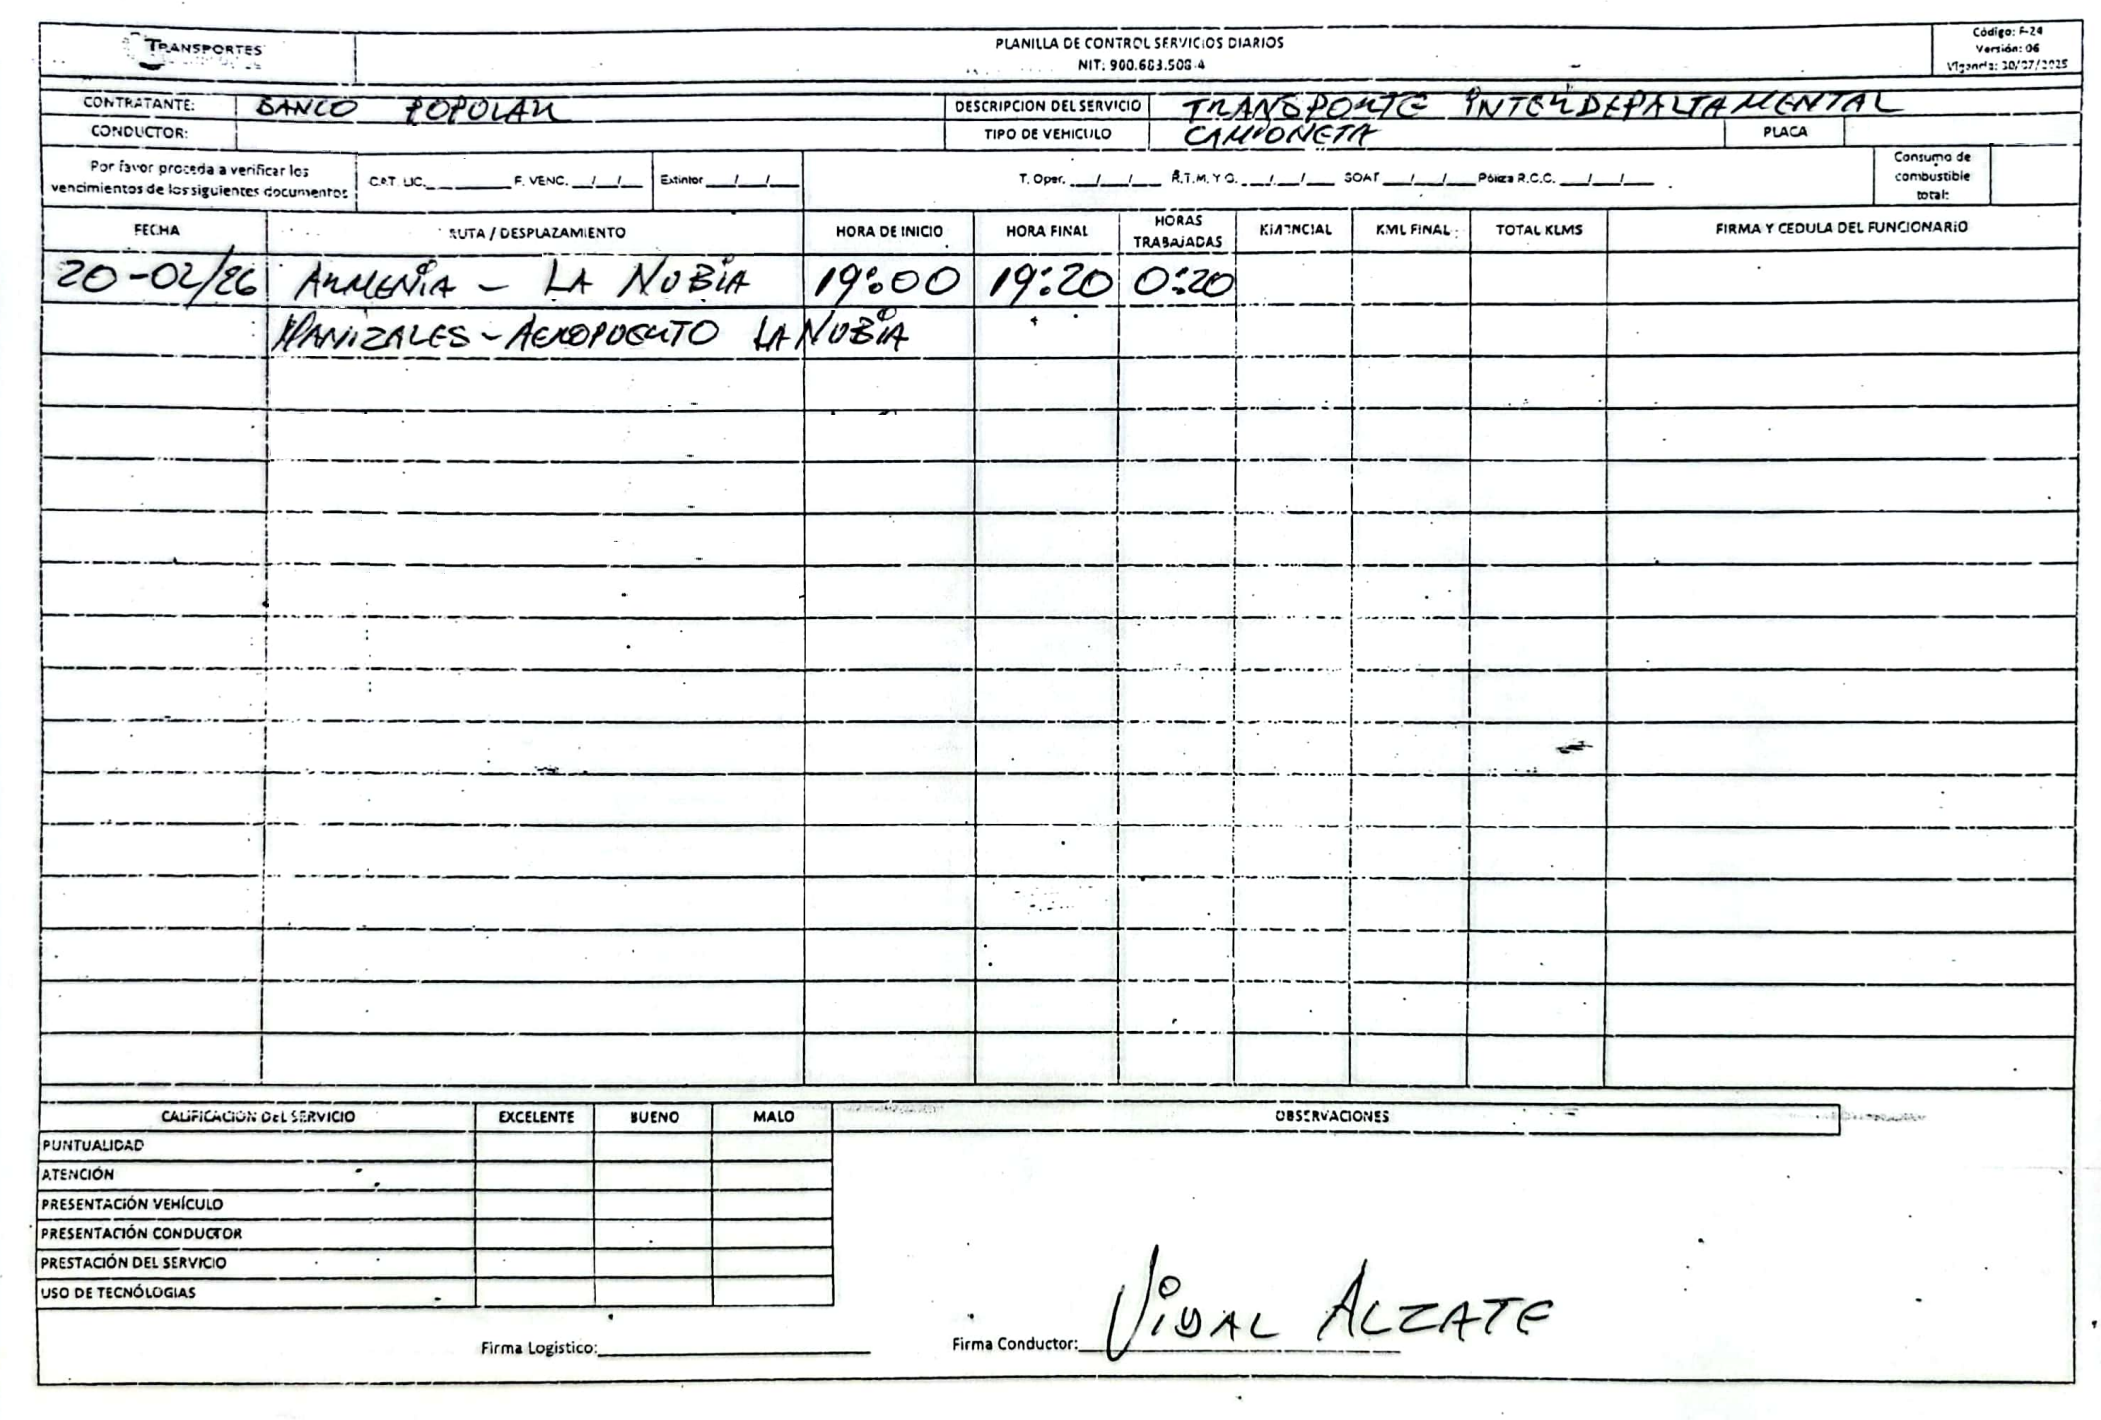 TRANSPORTES
PLANILLA DE CONTROL SERVICIOS DIARIOS
NIT: 900.683.508-4
Código: F-24
Versión: 06
Vigencia: 30/07/2025
CONTRATANTE: BANCO POPULAR
DESCRIPCION DEL SERVICIO TRANSPORTE INTERDEPARTAMENTAL
CONDUCTOR:
TIPO DE VEHICULO CAMIONETA
PLACA
Por favor proceda a verificar los
vencimientos de los siguientes documentos
CAT. LIC.__________ F. VENC. __/__/__
Extintor __/__/__
T. Oper. __/__/__ R.T.M. Y G. __/__/__ SOAT __/__/__ Póliza R.C.C. __/__/__
Consumo de
combustible
total:
FECHA
RUTA / DESPLAZAMIENTO
HORA DE INICIO
HORA FINAL
HORAS
TRABAJADAS
KML FINAL
TOTAL KLMS
FIRMA Y CEDULA DEL FUNCIONARIO
20-02/26 ARMENIA - LA NUBIA 19:00 19:20 0:20
MANIZALES - AEROPUERTO LA NUBIA
CALIFICACION DEL SERVICIO EXCELENTE BUENO MALO
OBSERVACIONES
PUNTUALIDAD
ATENCIÓN
PRESENTACIÓN VEHÍCULO
PRESENTACIÓN CONDUCTOR
PRESTACIÓN DEL SERVICIO
USO DE TECNÓLOGIAS
Firma Logistico:__________
Firma Conductor: VIDAL ALZATE